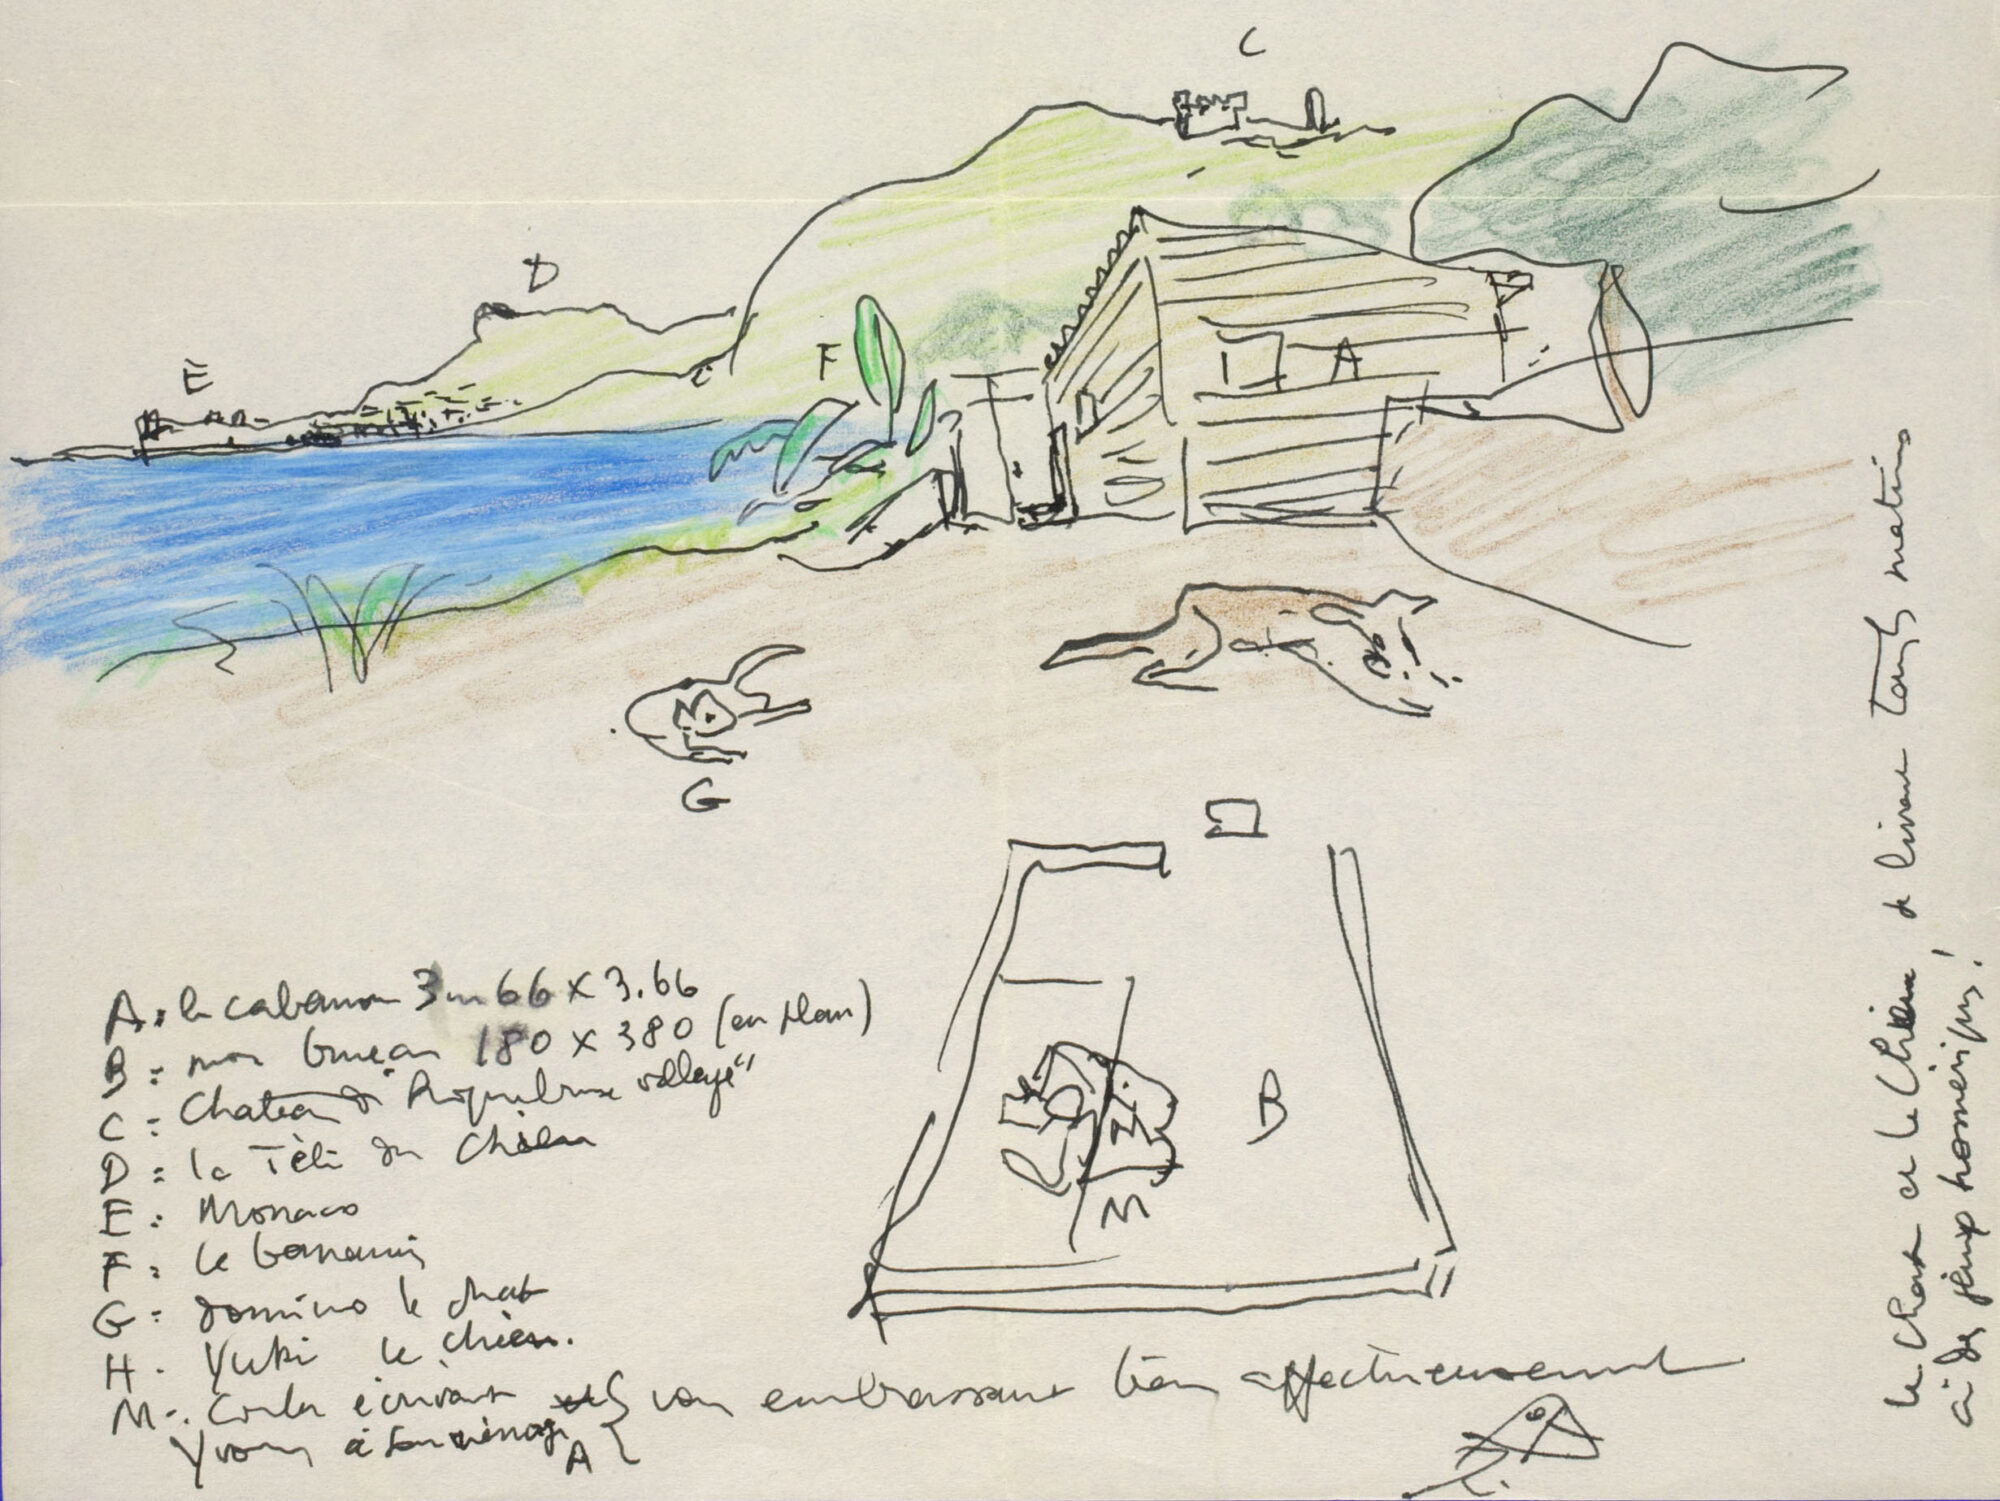 C
D
E
F
A
G
B
M
A : le cabanon 3m66 x 3.66
B : mon bureau 180 x 380 (en plan)
C : Chateau d Roquebrune village"
D : la Tête du Chien
E : Monaco
F : le bananier
G : domino le chat
H . Yuki le chien.
M - Corbu écrivant
Yvonne à son ménage A
vous embrassant bien affectueusement
le Chat et le Chien se livrent tous les matins
à des jeux homériques !